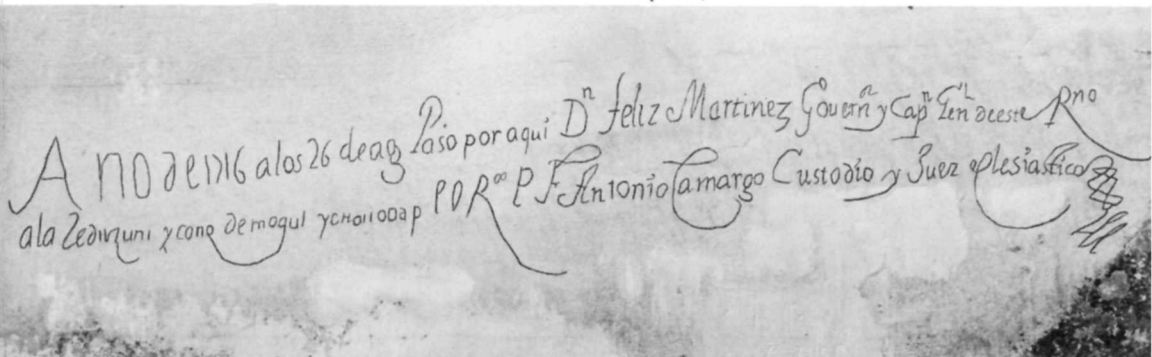 Ano de 1716 a los 26 de ag Paso por aqui Dn feliz Martinez Govern y Capn Gen deeste Rno
a la y conq de moqui PORdo P F Antonio Camargo Custodio y Juez eplesiastico